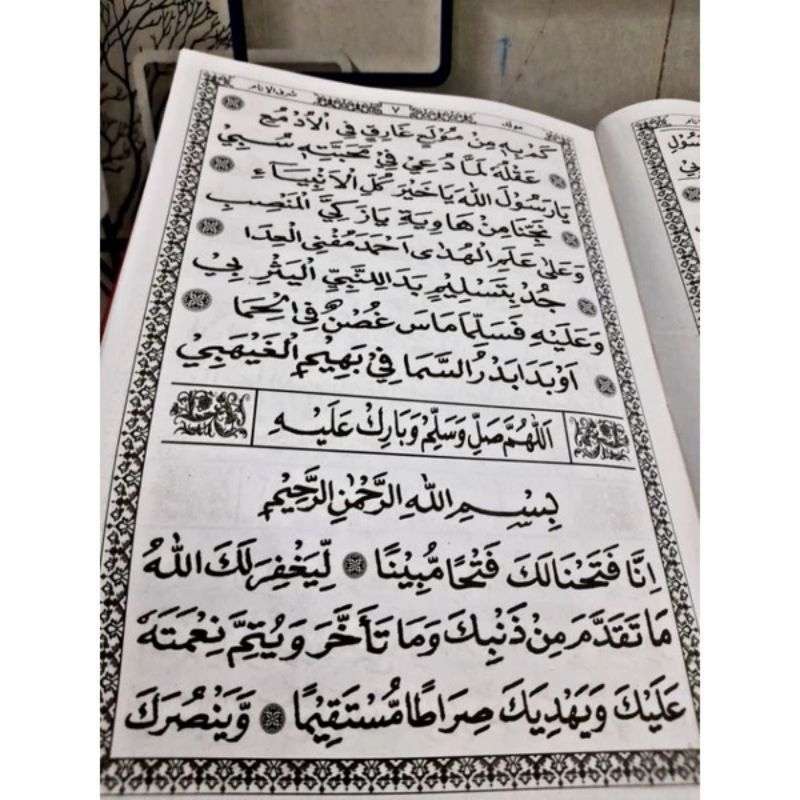 مولد ٧ شرف الانام
كَمْ بِهِ مِنْ مُوْلَعٍ غَارِقٍ فِي الْاَدْمُعِ
عَقْلُهُ لَمَّا دُعِيْ فِيْ مَحَبَّتِهِ سُبِيْ
يَارَسُوْلَ اللهِ يَاخَيْرَ كُلِّ الْاَنْبِيَاءِ
نَجِّنَا مِنْ هَاوِيَةٍ يَازَكِيَّ الْمَنْصِبِ
وَعَلَى عَلَمِ الْهُدٰى اَحْمَدَ مُفْنِى الْعِدَا
جُدْ بِتَسْلِيْمٍ بَدَا لِلنَّبِيِّ الْيَثْرِبِيْ
وَعَلَيْهِ فَسَلِّمَا مَاسَ غُصْنٌ فِي الْحِمَا
اَوْبَدَا بَدْرُ السَّمَا فِيْ بَهِيْمِ الْغَيْهَبِيْ
اَللّٰهُمَّ صَلِّ وَسَلِّمْ وَبَارِكْ عَلَيْهِ
بِسْمِ اللهِ الرَّحْمٰنِ الرَّحِيْمِ
اِنَّا فَتَحْنَا لَكَ فَتْحًا مُّبِيْنًا لِّيَغْفِرَ لَكَ اللهُ
مَا تَقَدَّمَ مِنْ ذَنْبِكَ وَمَا تَأَخَّرَ وَيُتِمَّ نِعْمَتَهُ
عَلَيْكَ وَيَهْدِيَكَ صِرَاطًا مُّسْتَقِيْمًا وَّيَنْصُرَكَ